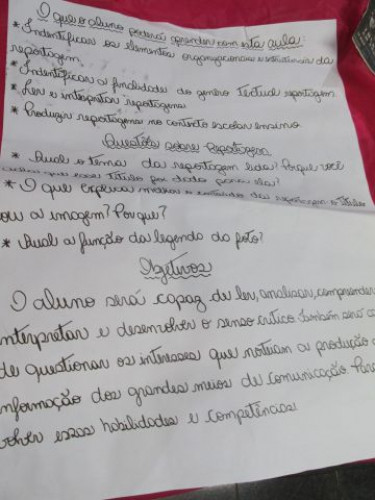 O que o aluno poderá aprender com esta aula
* Indentificar os elementos organizacionais e estruturais da
reportagem
* Indentificar a finalidade do genero Textual reportagem
* Ler e interpretar reportagens
* Produzir reportagens no contexto escolar ensino
Questões sobre Reportagem
* Qual o tema da reportagem lida? Porque você
esse Titulo foi dado para ela?
* O que explica melhor o da reportagem o Titulo
ou a imagem? Por que?
* Qual a função da legenda da foto?
Objetivos
O aluno será capaz de ler, analisar, compreender
interpretar e desenvolver o senso critico Também será ca
de questionar os interesses que norteiam a produção
nformação dos grandes meios de comunicação. Para
volver essas habilidades e competências